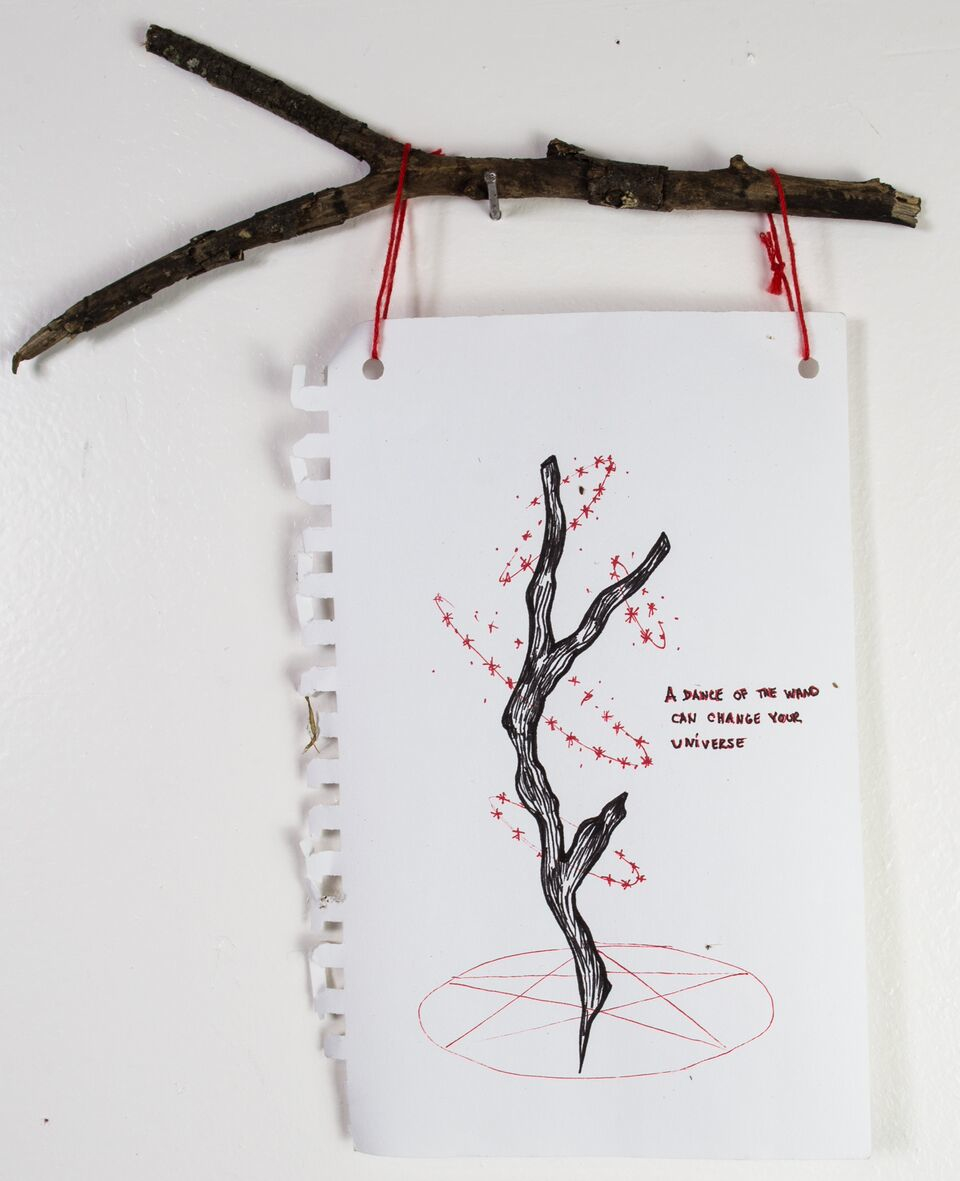 A DANCE OF THE WAND
CAN CHANGE YOUR
UNIVERSE